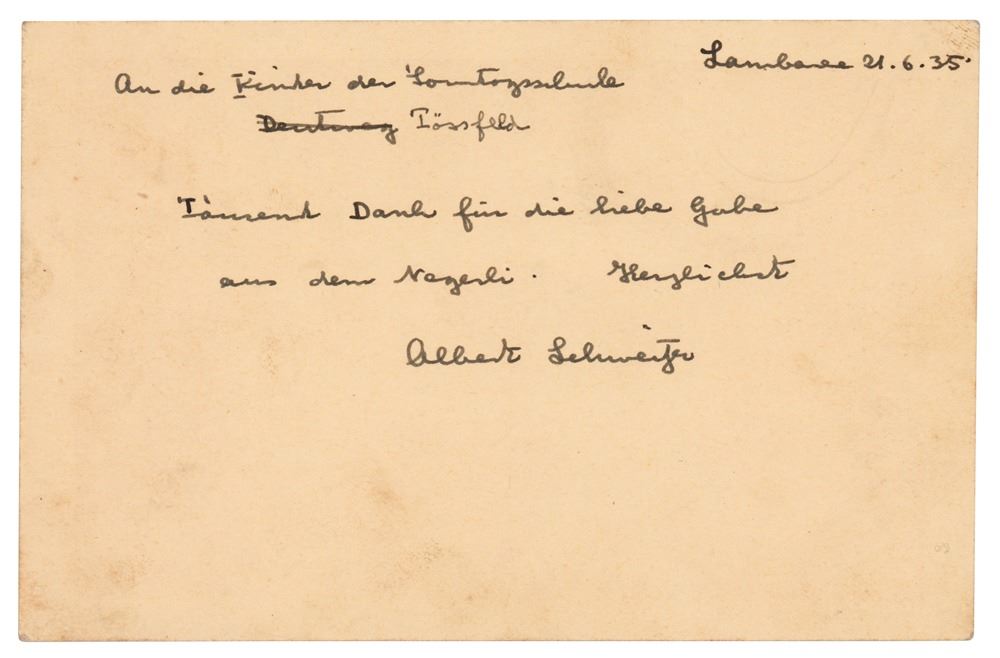 Lambarene 21.6.35.
An die Kinder der Sonntagsschule
Deutweg Tössfeld
Tausend Dank für die liebe Gabe
aus dem Negerli. Herzlichst
Albert Schweitzer